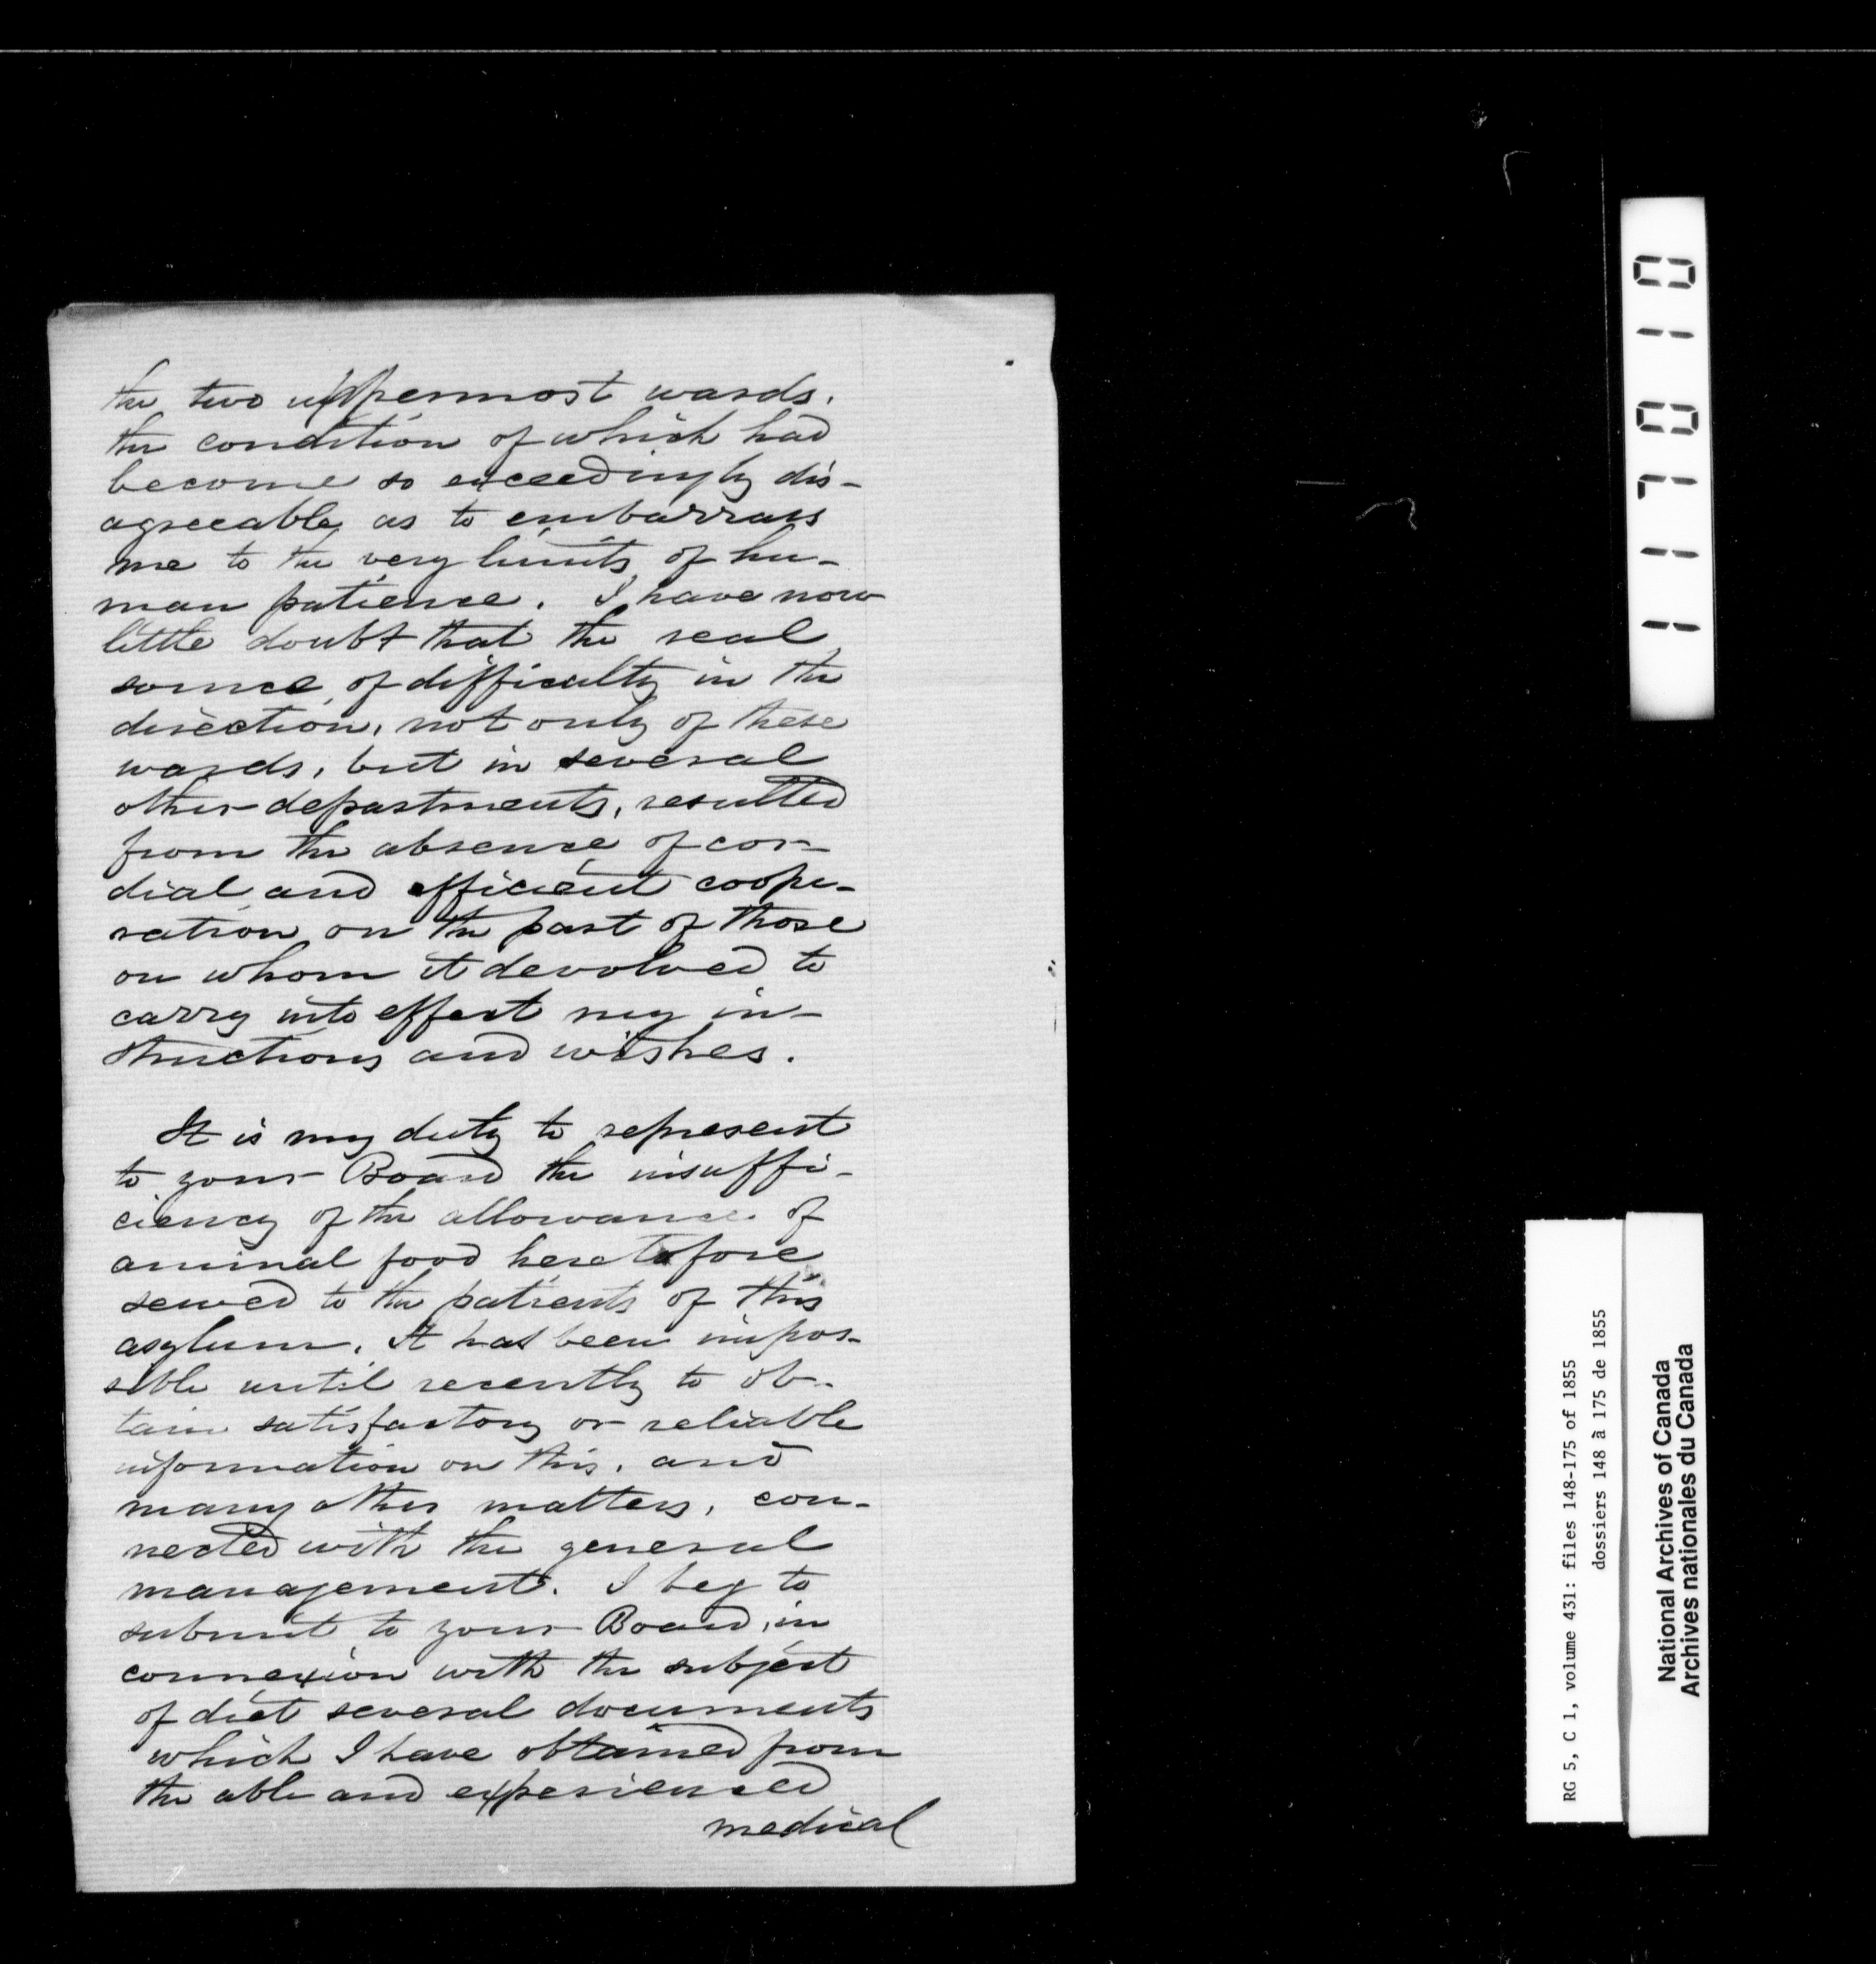 the two uppermost wards,
the condition of which had
become so exceedingly dis-
agreeable as to embarrass
me to the very limits of hu-
man patience. I have now
little doubt that the real
source of difficulty in the
direction, not only of these
wards, but in several
other departments, resulted
from the absence of cor-
dial and efficient coope-
ration on the part of those
on whom it devolved to
carry into effect my in-
structions and wishes.
It is my duty to represent
to your Board the insuffi-
ciency of the allowance of
animal food heretofore
served to the patients of this
asylum. It has been impos-
sible until recently to ob-
tain satisfactory or reliable
information on this, and
many other matters, con-
nected with the general
management. I beg to
submit to your Board, in
connexion with the subject
of diet several documents
which I have obtained from
the able and experienced
medical
117010
RG 5, C 1, volume 431: files 148-175 of 1855
dossiers 148 à 175 de 1855
National Archives of Canada
Archives nationales du Canada